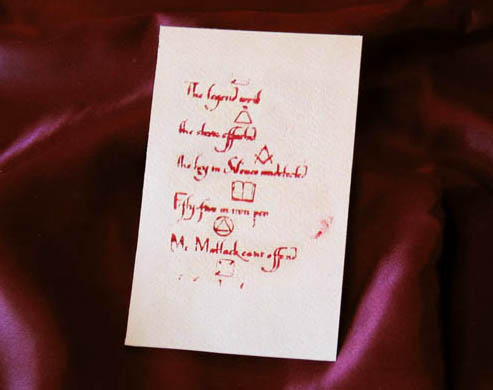 The legend writ
the stain effected
the key in Silence undetected
Fifty-five in iron pen
Mr Matlack can't offend